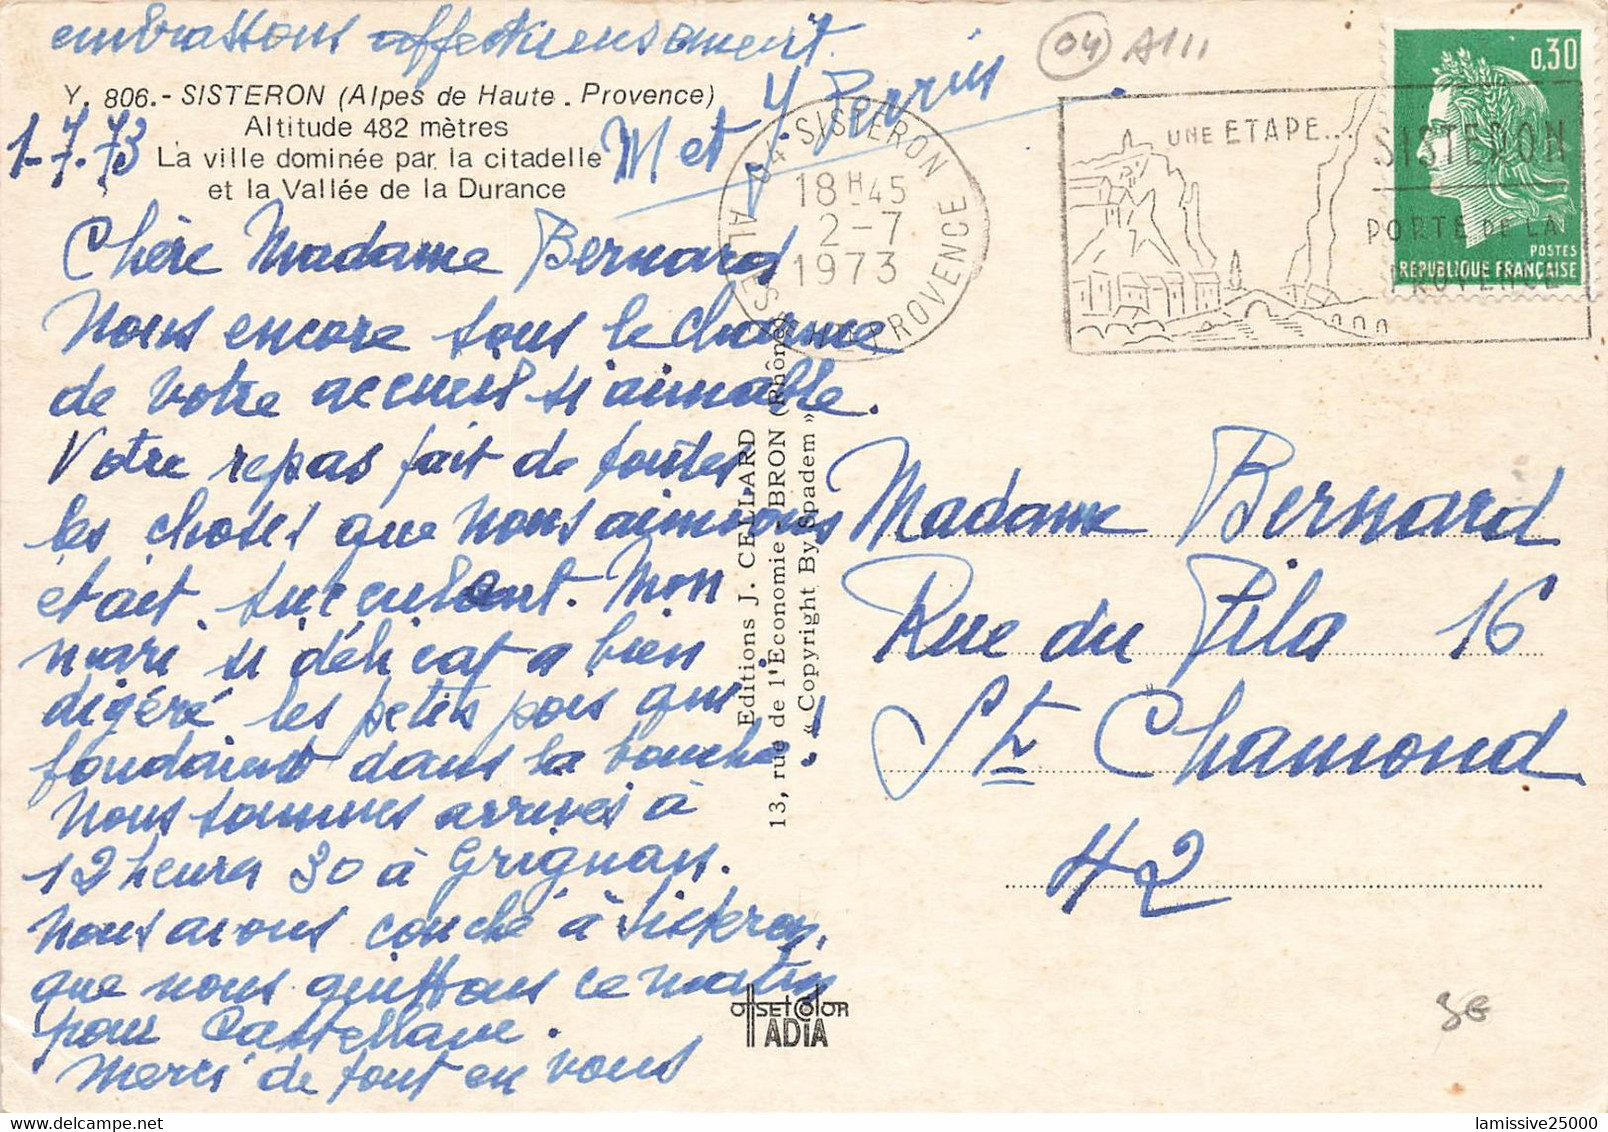 embrassons affectueusement.
M et Y. Perrin
Y. 806.- SISTERON (Alpes de Haute. Provence)
Altitude 482 mètres
La ville dominée par la citadelle
et la Vallée de la Durance
1-7.73
Chère Madame Bernard
Nous encore sous le charme
de votre accueil si aimable.
Votre repas fait de toutes
les choses que nous aimions
était succulent. Mon
mari si délicat a bien
digéré les petits pois qui
fondaient dans la bouche!
Nous sommes arrivés à
12 heures 30 à Grignan.
Nous avons couché à Sisteron,
que nous quittons ce matin
pour Castellane.
Merci de tout en vous
Editions J. CELLARD
13, rue de l'Economie BRON (Rhône)
« Copyright By Spadem »
OFFSET COLOR
ADIA
04 SISTERON
18H45
2-7
1973
ALPES HTE PROVENCE
UNE ETAPE...
SISTERON
PORTE DE LA
PROVENCE
0,30
POSTES
RÉPUBLIQUE FRANÇAISE
04
Madame Bernard
Rue du Pila 16
St Chamond
42
lamissive25000